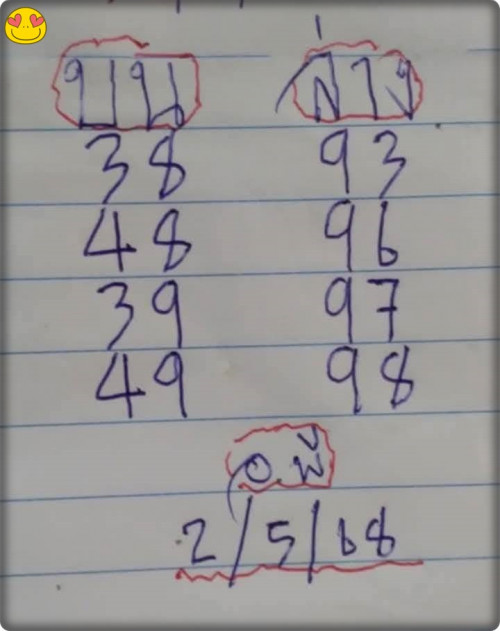 บน ล่าง
38 93
48 96
39 97
49 98
อ.พี
2/5/68